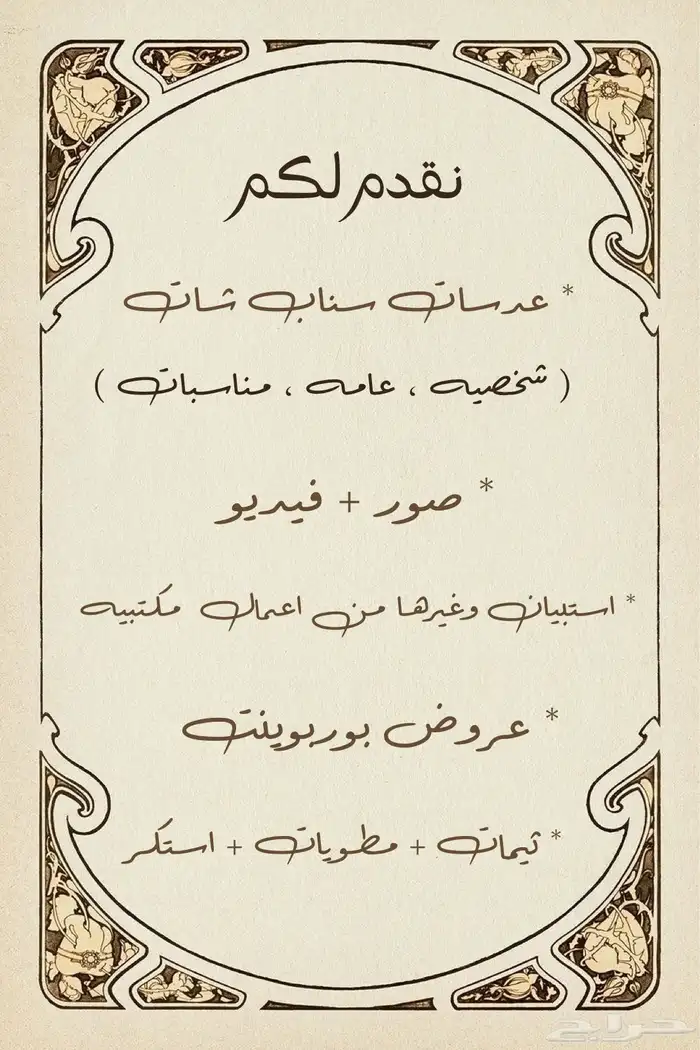 نقدم لكم
* عدسات سناب شات
( شخصيه ، عامه ، مناسبات )
* صور + فيديو
* استبيان وغيرها من اعمال مكتبيه
* عروض بوربوينت
* ثيمات + مطويات + استكر
حراج